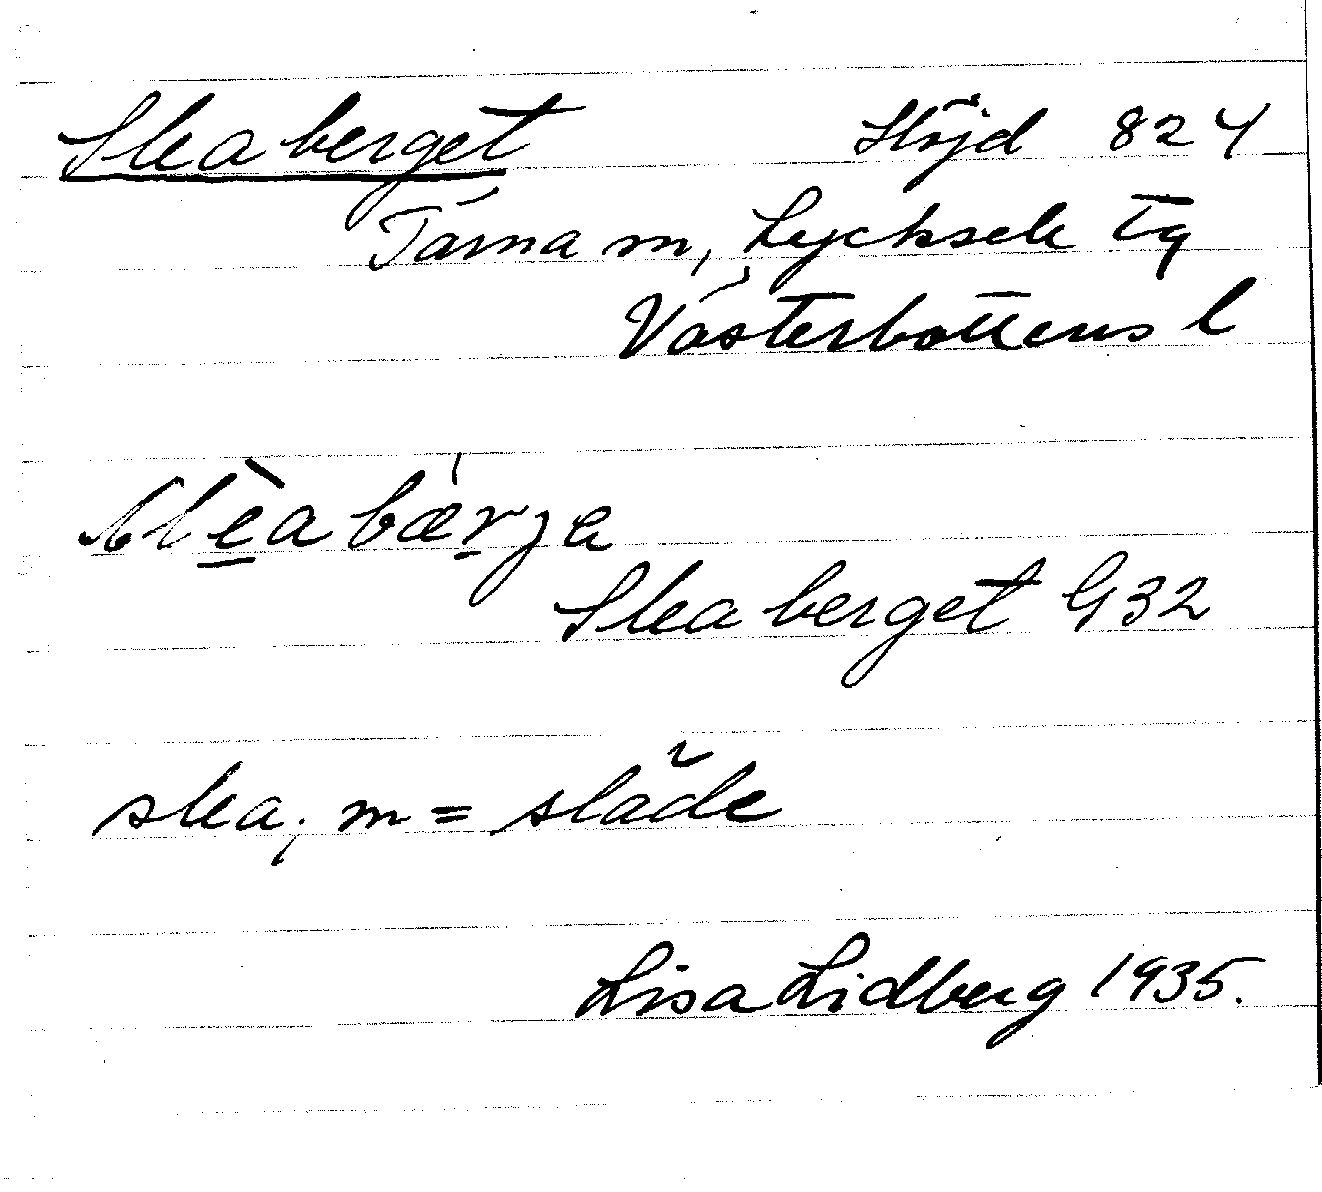 Sleaberget Höjd 824
Tärna sn, Lycksele tg
Västerbottens l
slèabǽrje
Sleaberget G32
slea, m = släde
Lisa Lidberg 1935.